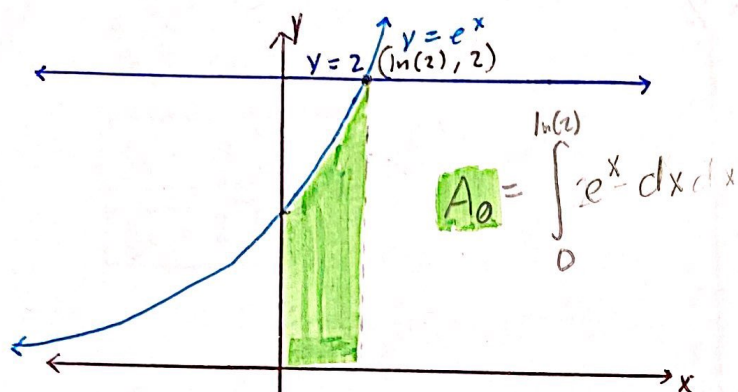 y
y = e^x
y = 2 (ln(2), 2)
A₀ = ∫₀^ln(2) e^x dx dx
x